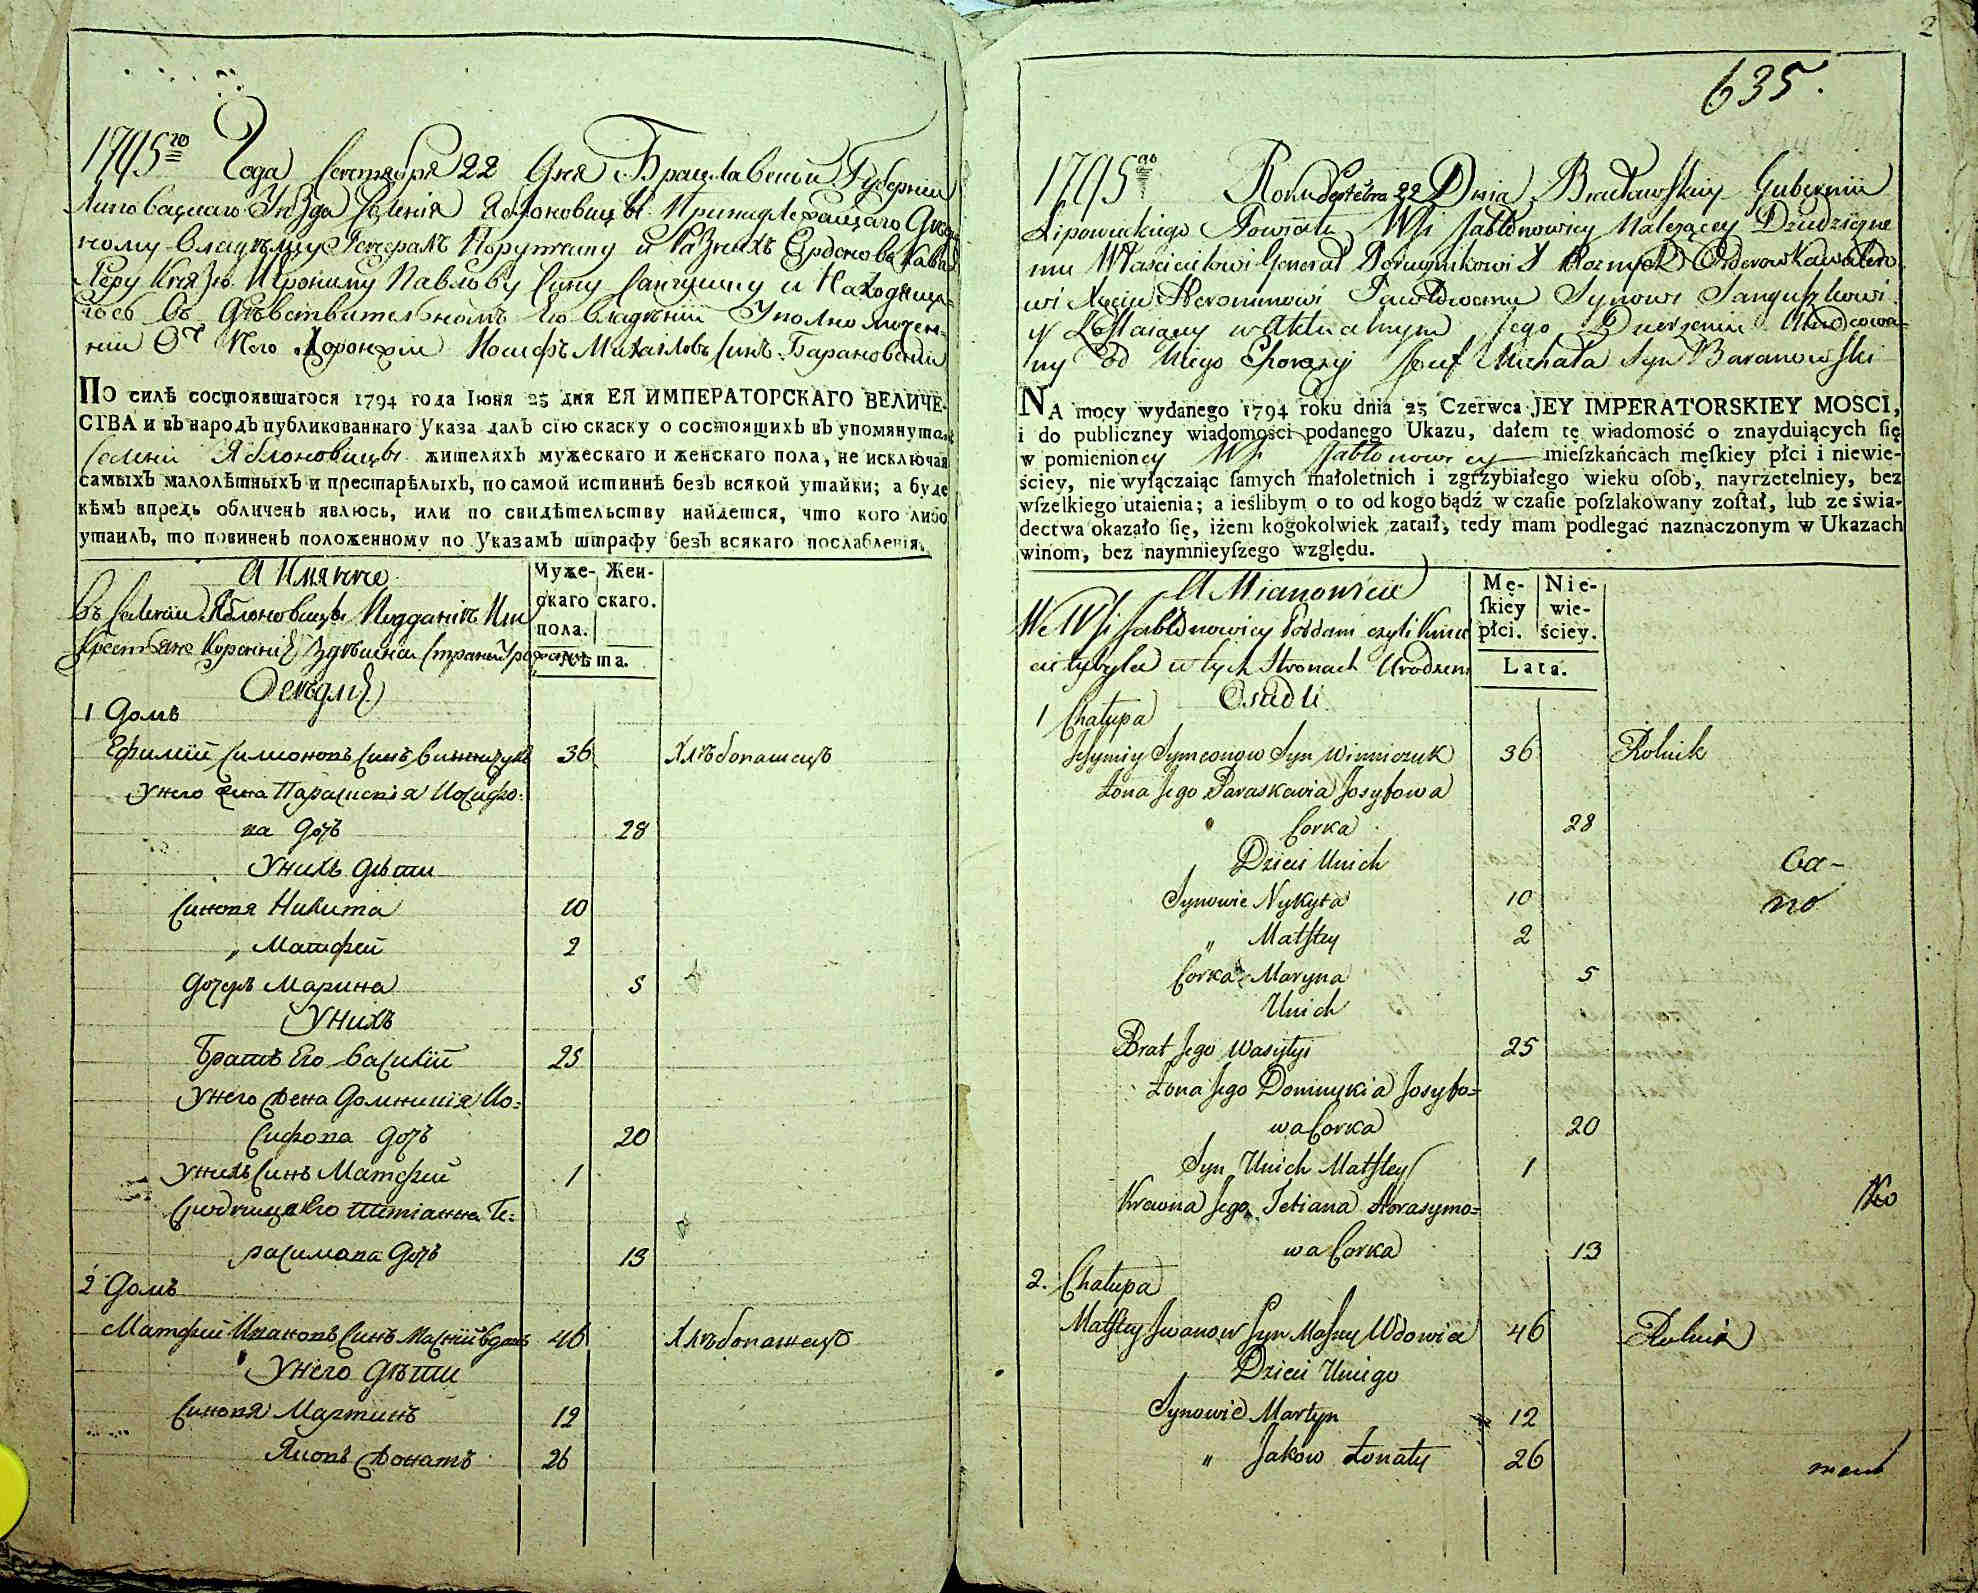 1795го Года Сентября 22 Дня Брацлавской Губернии
Липовацкаго Уѣзда Селенія Яблоновицы Принадлежащаго Дѣдич
ному Владѣлцу Генералъ Порутчику и Разнихъ Ордоновъ Кава
Леру Князю Ирониму Павлову Сину Сангушку и Находяща
гось въ Дѣвствителномъ Его владѣніи Уполномочен-
ній Отъ Него Хоронжій Иосифъ Михаиловъ Синъ Барановскій
По силѣ состоявшагося 1794 года Іюня 25 дня ЕЯ ИМПЕРАТОРСКАГО ВЕЛИЧЕ-
СТВА и въ народъ публикованнаго Указа далъ сію скаску о состоящихъ въ упомянутомъ
Селеніи Яблоновицы жителяхъ мужескаго и женскаго пола, не исключая
самыхъ малолѣтныхъ и престарѣлыхъ, по самой истиннѣ безъ всякой утайки; а буде
кѣмъ впредь обличенъ явлюсь, или по свидѣтельству найдется, что кого либо
утаилъ, то повиненъ положенному по Указамъ штрафу безъ всякаго послабленія.
А Имянно
Въ Селеніи Яблоновицы Подданіи Или
Крестьяне Коренніи Здѣшних Страній
Оселдліе
Муже-
скаго
пола.
Жен-
скаго.
Лѣта.
1 Домъ
Ефимій Симионовъ Синъ Винничукъ 36 Хлѣбопашецъ
Унего жена Параскевія Иосифо:
ва Дочь 28
Унихъ Дѣти
Синовя Никита 10
„ Матфей 2
Дочерь Марина 5
Унихъ
Братъ Его Василій 25
Унего Жена Домникія Ио:
сифова Дочь 20
Унихъ Синъ Матфей 1
Сродница Его Тетіанна Ге:
расимова Дочь 13
2 Домъ
Матфей Ивановъ Синъ Маснїй Вдовъ 46 Хлѣбопашецъ
Унего Дѣти
Синовя Мартинъ 12
Яковъ Жонатъ 26
2
635.
1795go Roku Septebra 22 Dnia Bracławskiey Gubernii
Lipowieckiego Powiatu Wsi Jabłonowicy Należącey Dziedziczne
mu Właścicielowi Generał Porucznikowi Y Roznych Orderow Kawalero
wi Xięciu Heronimowi Pawłowemu Synowi Sanguszkowi
y Zostaiącey w Aktualnym Jego Dzierżeniu Umocowa-
ny Od Niego Chorąży Józef Michała Syn Baranowski
NA mocy wydanego 1794 roku dnia 25 Czerwca JEY IMPERATORSKIEY MOSCI,
i do publiczney wiadomości podanego Ukazu, dałem tę wiadomość o znayduiących ſię
w pomienioney Wsi Jabłonowicy mieſzkańcach męſkiey płci i niewie-
ściey, nie wyłączaiąc ſamych małoletnich i zgrzybiałego wieku oſob, nayrzetelniey, bez
wſzelkiego utaienia; a ieślibym o to od kogo bądź w czaſie poſzlakowany zoſtał, lub ze świa-
dectwa okazało ſię, iżem kogokolwiek zataił, tedy mam podlegać naznaczonym w Ukazach
winom, bez naymnieyſzego względu.
A Mianowicie
We Wsi Jabłonowicy Poddani czyli Kmie
cie tybyle w tych Stronach Urodzeni
Osiedli
Mę-
ſkiey
płci.
Nie-
wie-
ściey.
Lata.
1 Chałupa
Jefymiy Symeonow Syn Winniczuk 36 Rolnik
Żona Jego Paraskawia Josyfowa
Corka 28
Dzieci Unich
Synowie Nykyta 10
„ Matftey 2
Corka Maryna 5
Unich
Brat Jego Wasylyi 25
Żona Jego Dominykia Josyfo=
wa Corka 20
Syn Unich Matftey 1
Krewna Jego Tetiana Horasymo=
wa Corka 13
2. Chałupa
Matftey Iwanow Syn Masny Wdowiec 46 Rolnik
Dzieci Uniego
Synowie Martyn 12
„ Jakow Żonaty 26